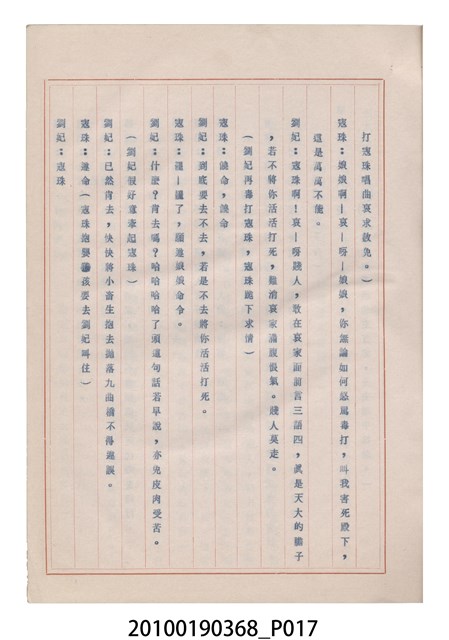 打寇珠唱曲哀求赦免。)
寇珠:娘娘啊!哀!呀!娘娘,你無論如何惡罵毒打,叫我害死殿下,
這是萬萬不能。
劉妃:寇珠啊!哀!呀賤人,敢在哀家面前言三語四,眞是天大的膽子
,若不將你活活打死,難消哀家滿腹恨氣。賤人莫走。
(劉妃再毒打寇珠,寇珠跪下求情)
寇珠:饒命,饒命
劉妃:到底要去不去,若是不去將你活活打死。
寇珠:罷!罷了,願遵娘娘命令。
劉妃:什麼?肯去嗎?哈哈哈哈了頭這句話若早說,亦免皮肉受苦。
(劉妃假好意牽起寇珠)
劉妃:已然肯去,快快將小畜生抱去拋落九曲橋不得遲誤。
寇珠:遵命(寇珠抱嬰孩要去劉妃叫住)
劉妃:寇珠
20100190368_P017